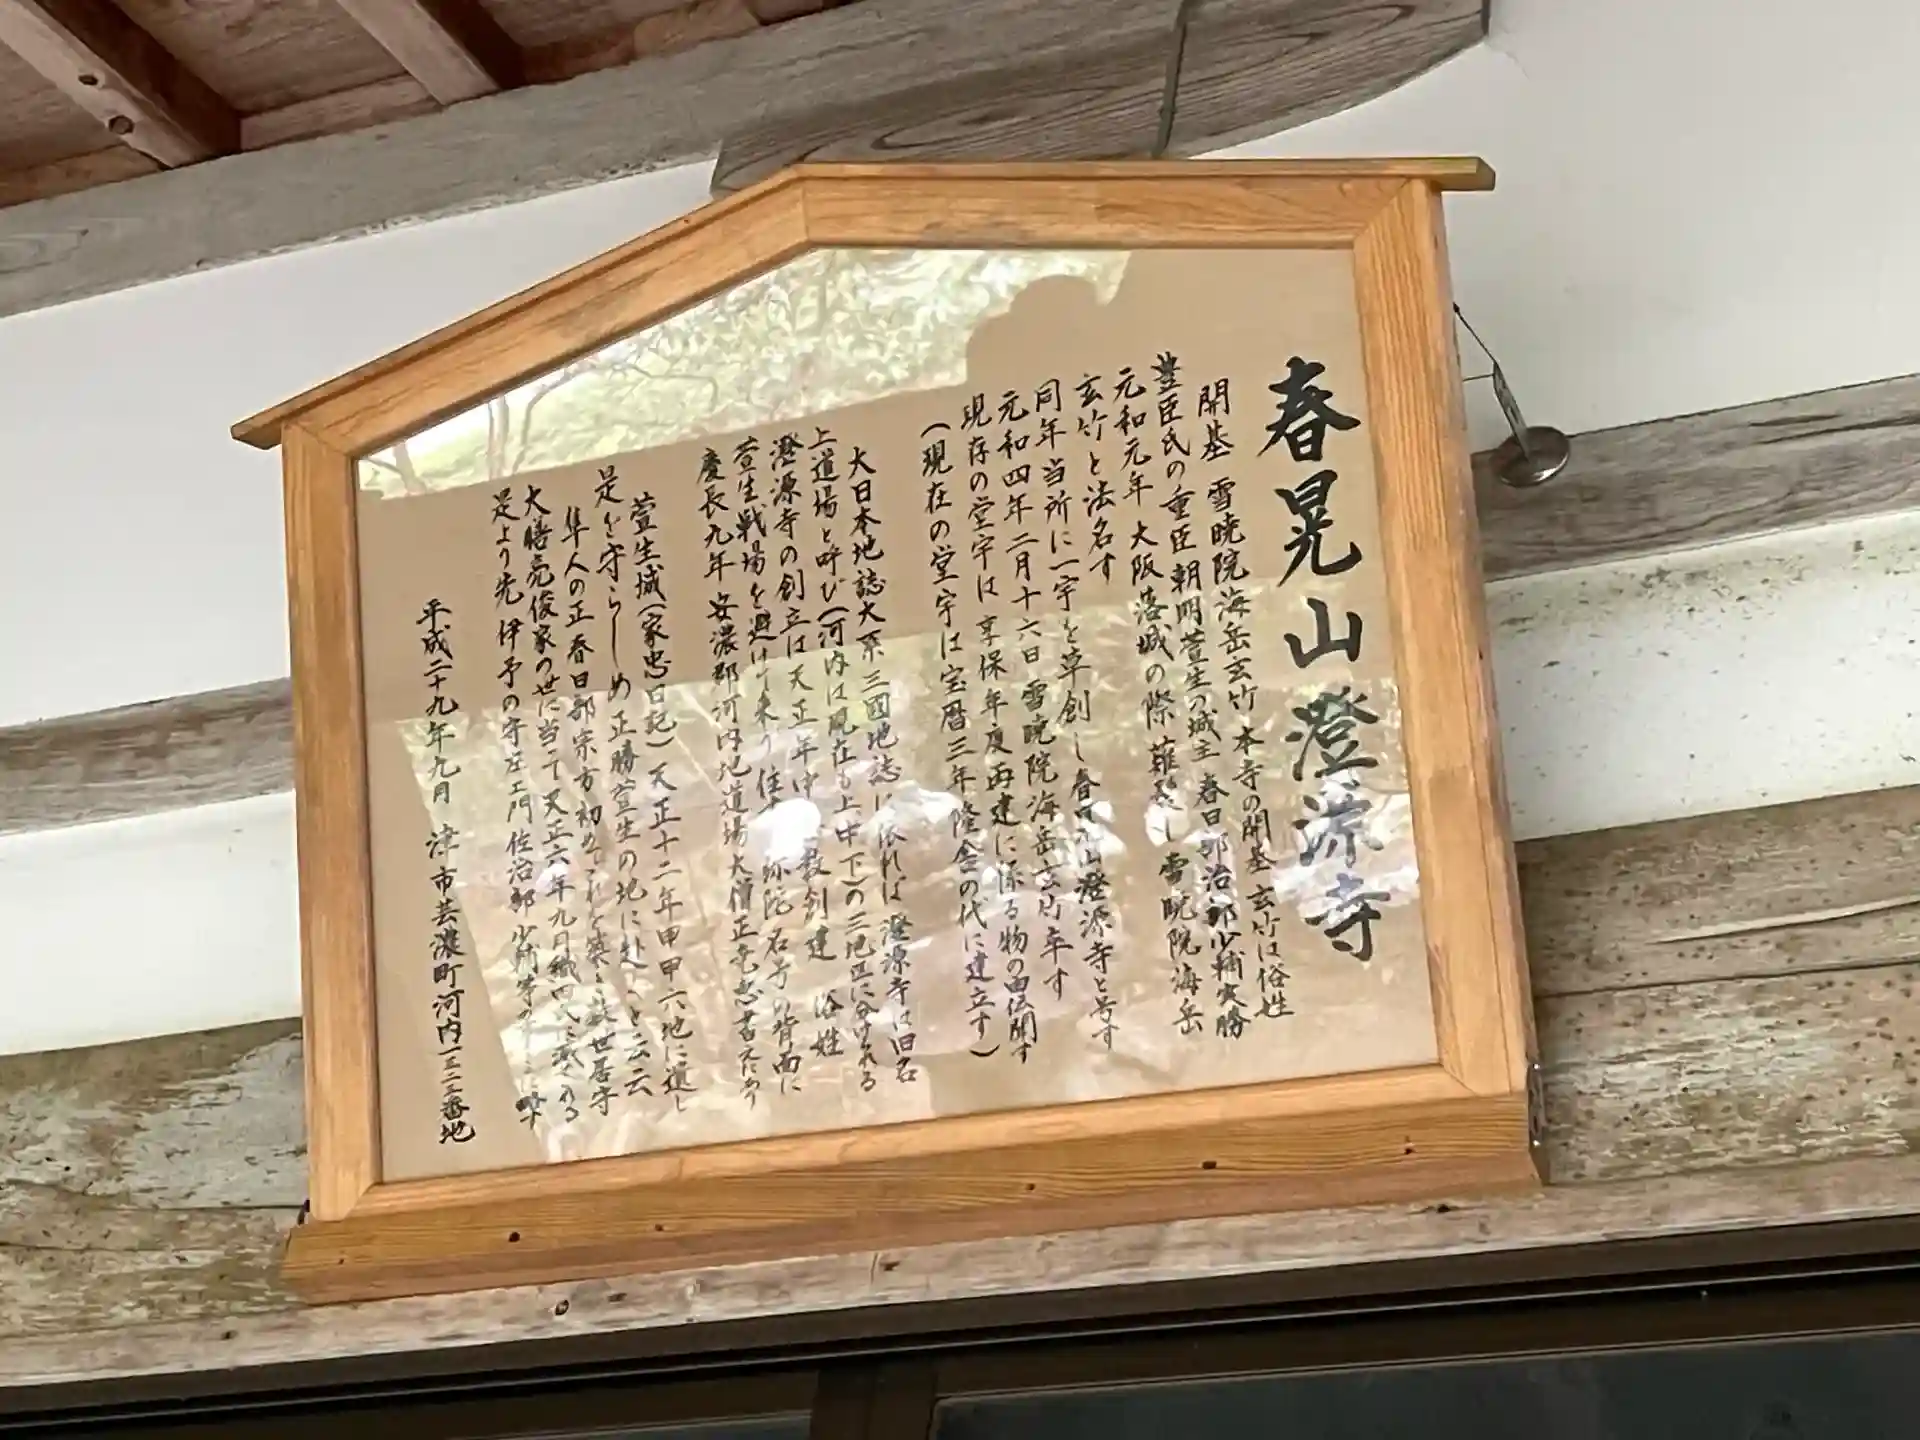 春晃山澄源寺
開基 雪暁院海岳玄竹 本寺の開基 玄竹は俗姓
豊臣氏の重臣朝明萱生の城主 春日部治部少輔実勝
元和元年 大阪落城の際 薙髪し雪暁院海岳
玄竹と法名す
同年当所に一宇を草創し春日山澄源寺と号す
元和四年二月十六日雪暁院海岳玄竹卒す
現存の堂宇は享保年度再建に係る物の由伝聞す
(現在の堂宇は宝暦三年隆舎の代に建立す)
大日本地誌大系三国地誌に依れば澄源寺は旧名
上道場と呼び(河内は現在も上中下)の三地区に分けれる
澄源寺の創立は天正年中 教創建 俗姓
萱生戦場を避けて来り住す 弥陀名号の背面に
慶長九年 安濃郡河内地道場大僧正 書えたり
萱生城(家忠日記)天正十二年甲申六地に遺し
是を守らしめ正勝萱生の地に赴くと云云
隼人の正春日部宗方初めてれを築く 世居守
大膳亮俊家の世に当て天正六年九月織田氏に 
是より先 伊予の守左エ門佐治部少輔等の
平成二十九年九月 津市芸濃町河内一三二三番地